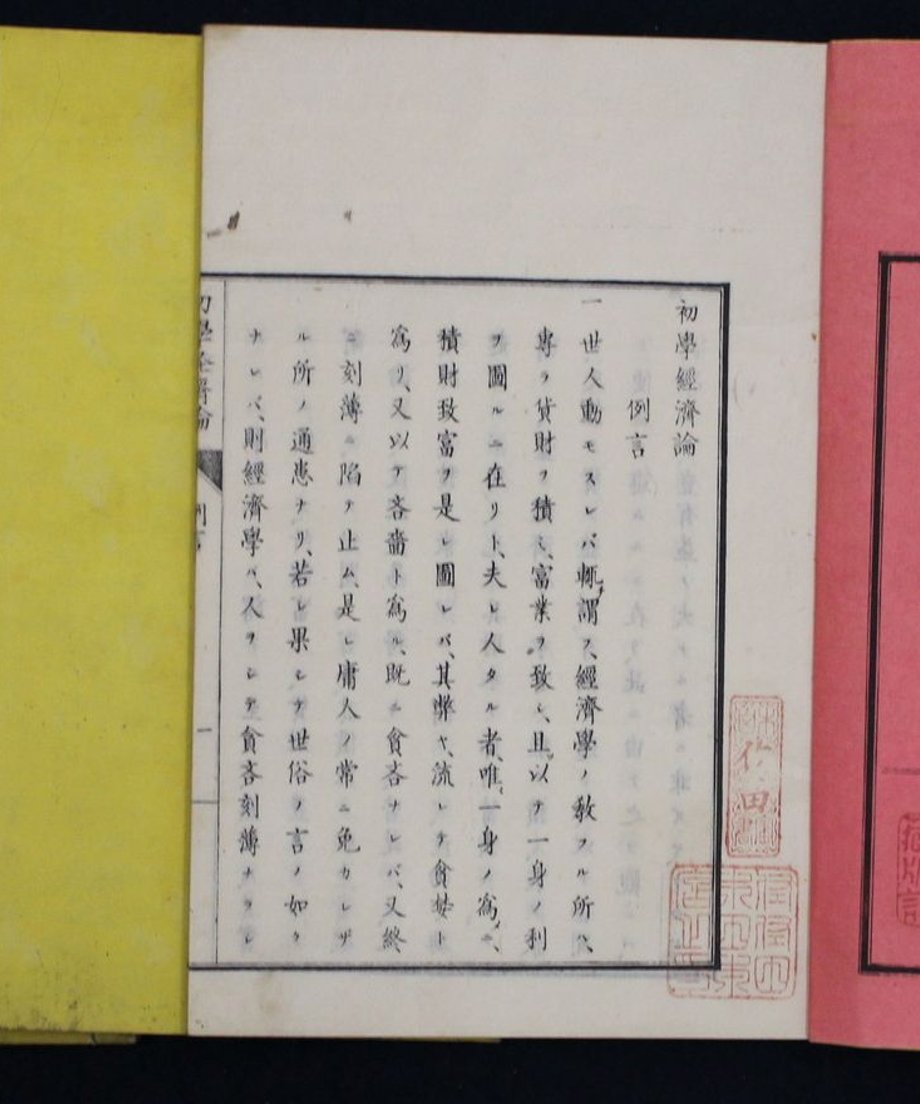 初學經濟論
例言
一世人動モスレバ輙謂フ、經濟學ノ敎フル所ハ、
專ラ貨財ヲ積ミ、富業ヲ致シ、且以テ一身ノ利
ヲ圖ルニ在リト、夫レ人タル者、唯一身ノ爲ニ、
積財致富ヲ是レ圖レバ、其弊ヤ、流レテ貪婪ト
爲リ、又以テ吝嗇ト爲ル、既ニ貪吝ナレバ、又終
ニ刻薄ニ陷テ止ム、是レ庸人ノ常ニ免カレザ
ル所ノ通患ナリ、若シ果シテ世俗ノ言ノ如ク
ナレバ、則經濟學ハ、人ヲシテ貪吝刻薄ナラシ
初學經濟論
例言
一